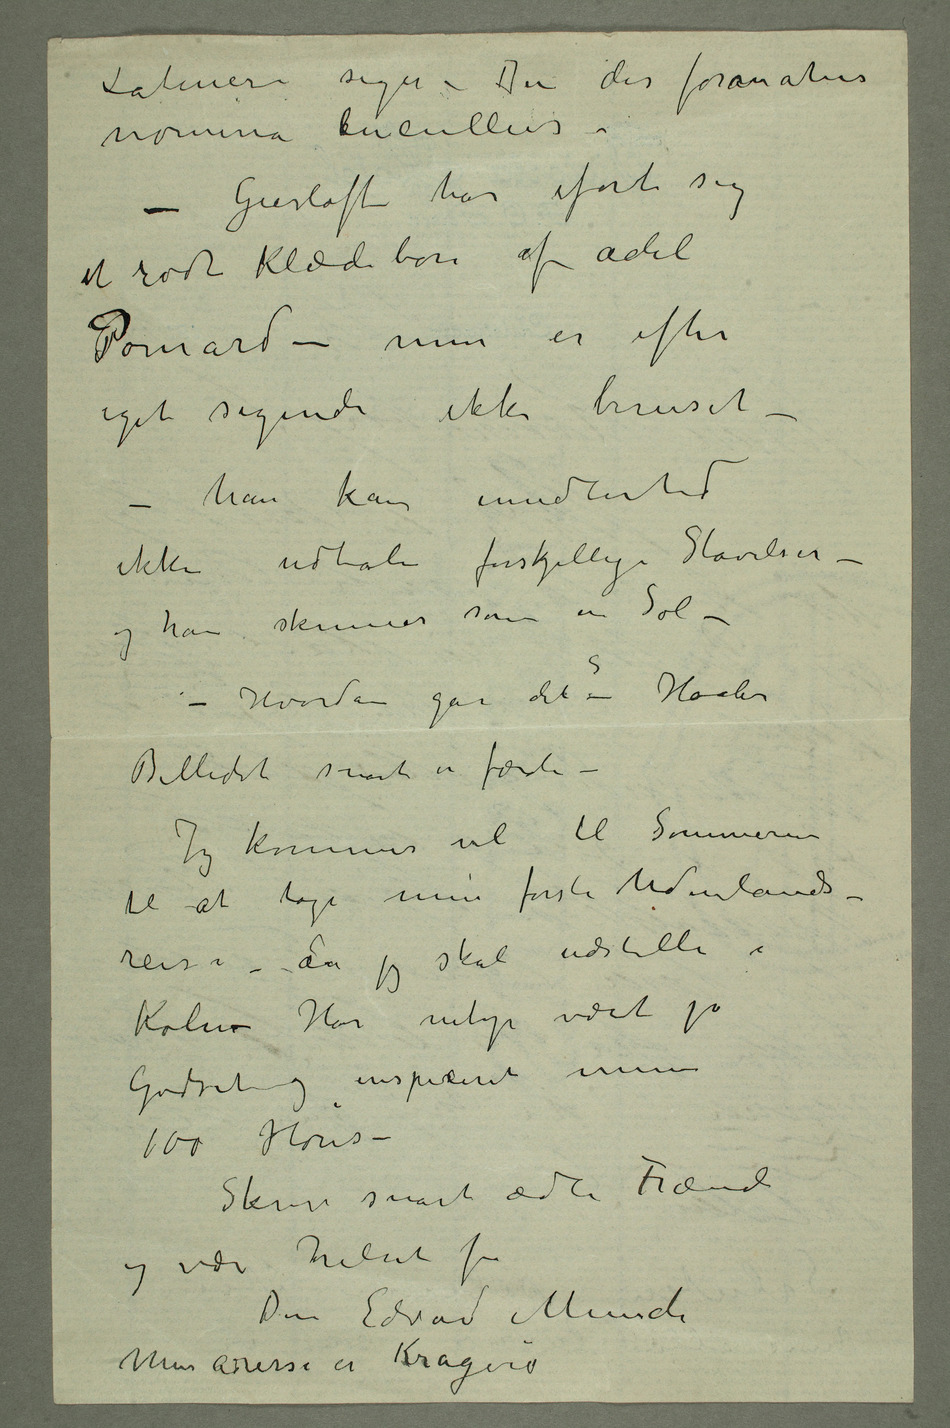 Latinerne siger – Den des foranatus
nomina lucullius –
– Gierløff har iført sig
et rødt Klædebon af ædel
Pomard – men er efter
eget sigende ikke beruset –
– han kan imidlertid
ikke udtale forskjellige Stavelser –
og han skinner som en Sol –
– Hvordan går det S – Haaber
Billedet snart er færdi –
Jeg kommer vel til Sommeren
til at tage min første Udenlands-
reise – da jeg skal udstille i
Køln – Har netop vært på
Godset og inspiceret mine
100 Høns –
Skriv snart ædle Frænde
og vær hilset fra
Din Edvard Munch
Min adresse er Kragerø